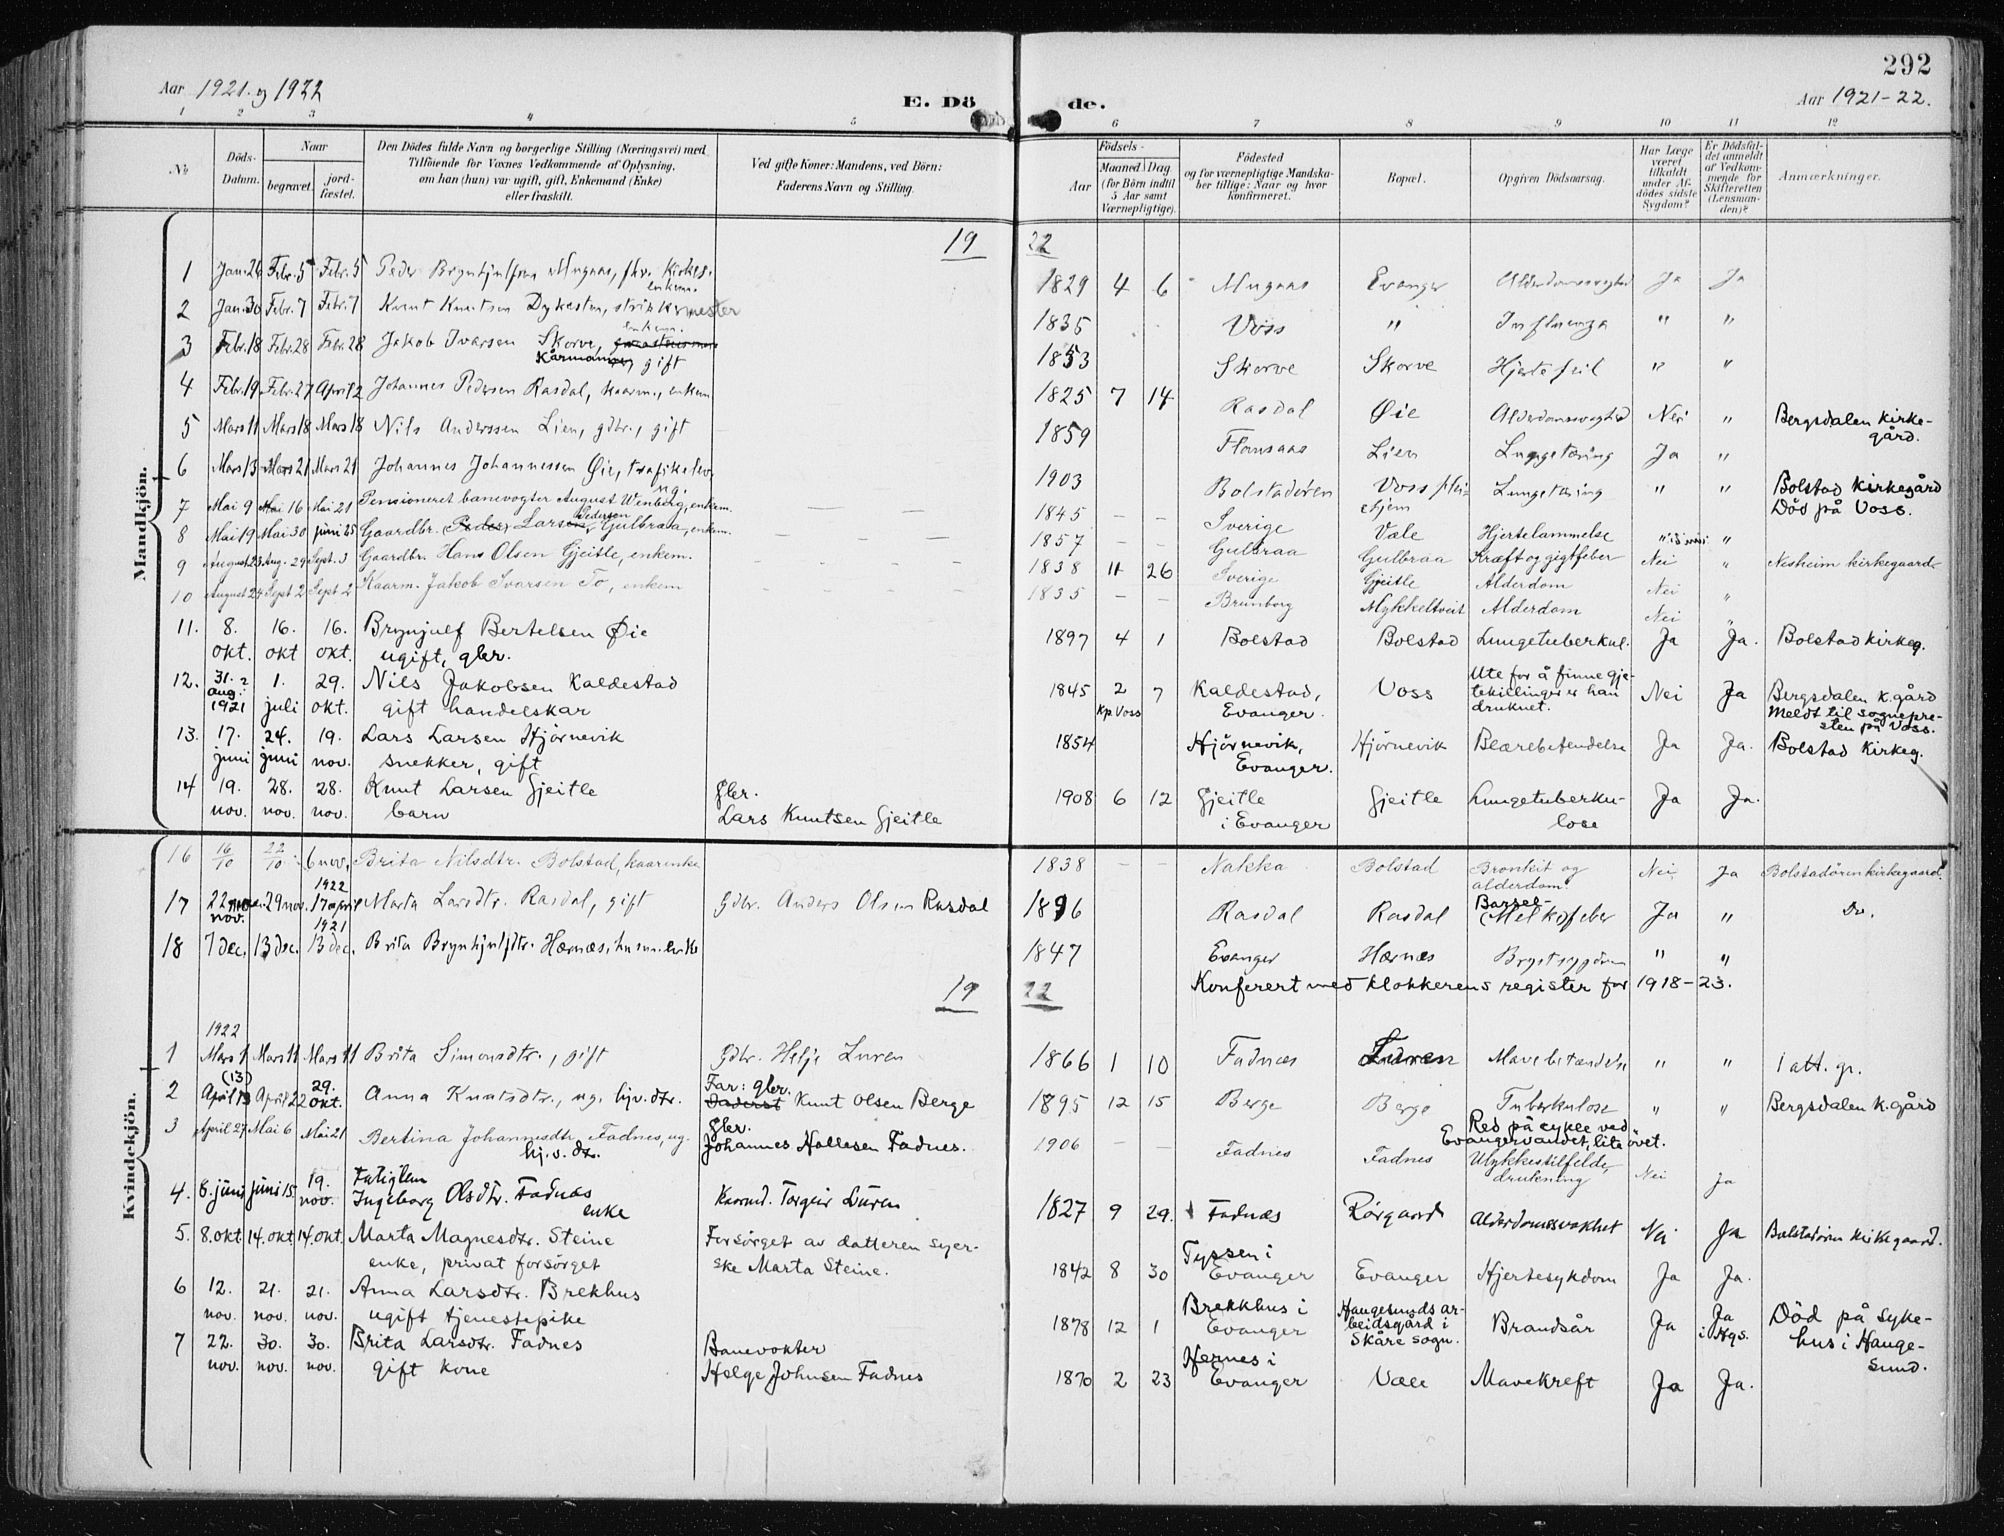 292
Aar 1921 og 1922
E. Dö
de.
Aar 1921-22.
1 2 3 4 5 6 7 8 9 10 11 12
No
Döds-Datum.
Naar
begravet.
jord-fæstet.
Den Dödes fulde Navn og borgerlige Stilling (Næringsvei) med
Tilföiende for Voxnes Vedkommende af Oplysning,
om han (hun) var ugift, gift, Enkemand (Enke)
eller fraskilt.
Ved gifte Koner: Mandens, ved Börn:
Faderens Navn og Stilling.
Födsels-
Aar
Maaned Dag
(for Börn indtil
5 Aar samt
Værnepligtige).
Födested
og for værnepligtige Mandska-
ber tillige: Naar og hvor
konfirmeret.
Bopæl.
Opgiven Dödsaarsag.
Har Læge
været
tilkaldt
under Af-
dödes sidste
Sygdom?
Er Dödsfal-
det anmeldt
af Vedkom-
mende for
Skifteretten
(Lensman-
den)?
Anmærkninger.
Mandkjön.
19 22
1 Jan. 26 Febr. 5 Febr. 5 Peder Brynhjulfsen Mugaas, enkem. 1829 4 6 Mugaas Evanger Alderdomssvaghed Ja Ja
2 Jan. 30 Febr. 7 Febr. 7 Knut Knutsen Dykesten, 1835 Voss " Influenza " "
3 Febr. 18 Febr. 28 Febr. 28 Jakob Ivarsen Skorve, enkem. Kårmann, gift 1853 Skorve Skorve Hjertefeil " "
4 Febr. 19 Febr. 27 April 2 Johannes Pedersen Rasdal, kaarm., enkem. 1825 7 14 Rasdal Øie Alderdomssvaghed Nei " Bergsdalen kirke-
gård.
5 Mars 11 Mars 18 Mars 18 Nils Anderssen Lien, gdbr., gift 1859 Lien Lungetæring Ja "
6 Mars 13 Mars 21 Mars 21 Johannes Johannessen Øie, ug. 1903 Bolstadøren Voss Lungetæring " " Bolstad kirkegård
Död på Voss.
7 Mai 9 Mai 16 Mai 21 Pensioneret banevogter August Wenberg, enkem. — — 1845 — — Sverige Væle Hjertelammelse "
8 Mai 19 Mai 30 Juni 25 Gaardbr. (Peder) Larsen Pedersen Gulbraa, enkem. 1857 — — Gulbraa Gulbraa Kræft og gigtfeber Nei "
9 August 23 Aug. 29 Sept. 3 Gaardbr. Hans Olsen Gjeitle, enkem. 1838 11 26 Sverige Gjeitle Alderdom Nei " Nesheim kirkegaard
10 August 24 Sept 2 Sept 2 Kaarm. Jakob Ivarsen To, enkem 1835 — — Brunborg Mykkeltveit Alderdom Nei "
11. 8. okt. 16. okt 16. okt. Brynjulf Bertelsen Øie
ugift, gbr. 1897 4 1 Bolstad Bolstad Lungetuberkul. Ja Ja. Bolstad kirkeg.
12. 31. aug. 1921 1. juli 29. okt. Nils Jakobsen Kaldestad
gift handelskar 1845 2 7 Kp. Voss Kaldestad,
Evanger. Voss Ute for å finne gje-
tekillinger er han
druknet. Nei Ja Bergsdalen k.gård
Meldt til sognepre-
sten på Voss.
13. 17. juni 24. juni 19. nov. Lars Larsen Hjørnevik
snekker, gift 1854 Hjørnevik,
Evanger. Hjørnevik Blærebetendelse Ja Ja. Bolstad kirkeg.
14 19. nov. 28. nov. 28. nov. Knut Larsen Gjeitle
barn Gbr.
Lars Knutsen Gjeitle 1908 6 12 Gjeitle
i Evanger Gjeitle Lungetuberku-
lose Ja Ja.
Kvindekjön.
16 16/10 22/10 6 nov. Brita Nilsdtr. Bolstad, kaarenke 1838 — — Nakka Bolstad Bronkit og
alderdom. Nei Ja Bolstadören kirkegaard.
17 22 nov. 29 nov. 1922 17 april Marta Larsdtr. Rasdal, gift Gdbr. Anders Olsen Rasdal 1896 Rasdal Rasdal Barsel-
(Melk)feber Ja " Do.
18 7 dec. 13 dec. 1921 13 dec. Brita Brynhjulfdtr. Hærnæs, 1847 Evanger Hærnæs Brystsygdom " "
Konferert med klokkerens register for 1918-23.
19 22
1922
1 Mars 1 Mars 11 Mars 11 Brita Simonsdtr., gift Gdbr. Helje Luren 1866 1 10 Fadnæs Luren Mavebetændelse " " 1 att. gr.
2 (13) April 13 April 22 29. okt. Anna Knutsdtr., ug. hjv. dtr. Far: gbr.
Knut Olsen Berge 1895 12 15 Berge Berge Tuberkulose " " Bergsdalen k.gård
3 April 27 Mai 6 Mai 21 Bertina Johannesdtr Fadnes, ug.
hj.v. dtr. Gbr.
Johannes Hallesen Fadnes. 1906 — — Fadnes Fadnes Red på cykle ved
Evangervandet, lite övet.
Ulykkestilfelde,
drukning Nei Ja
4. 6. juni juni 15. 19. nov. Fatiglem
Ingeborg Olsdtr. Fadnæs
enke Kaarmd. Torgeir Luren 1827 9 29. Fadnæs Rörgaard Alderdomssvakhet Nei Ja Bolstadören kirkegaard.
5. 8. okt 14. okt. 14. okt. Marta Magnesdtr. Steine
enke, privat forsörget Forsörget av datteren syer-
ske Marta Steine. 1842 8 30 Tyssen i
Evanger Evanger Hjertesykdom Ja Ja.
6 12. nov. 21. nov. 21. nov. Anna Larsdtr. Brekhus
ugift tjenestepike 1878 12 1 Brekkhus i
Evanger Haugesunds ar-
beidsgård i
Skåre sogn. Brandsår Ja Ja
i Hgs. Död på syke-
hus i Hauge-
sund.
7 22. nov. 30. nov. 30. nov. Brita Larsdtr. Fadnes
gift kone Banevokter
Helge Johnsen Fadnes 1870 2 23 Hernes i
Evanger Væle Mavekreft Ja Ja.